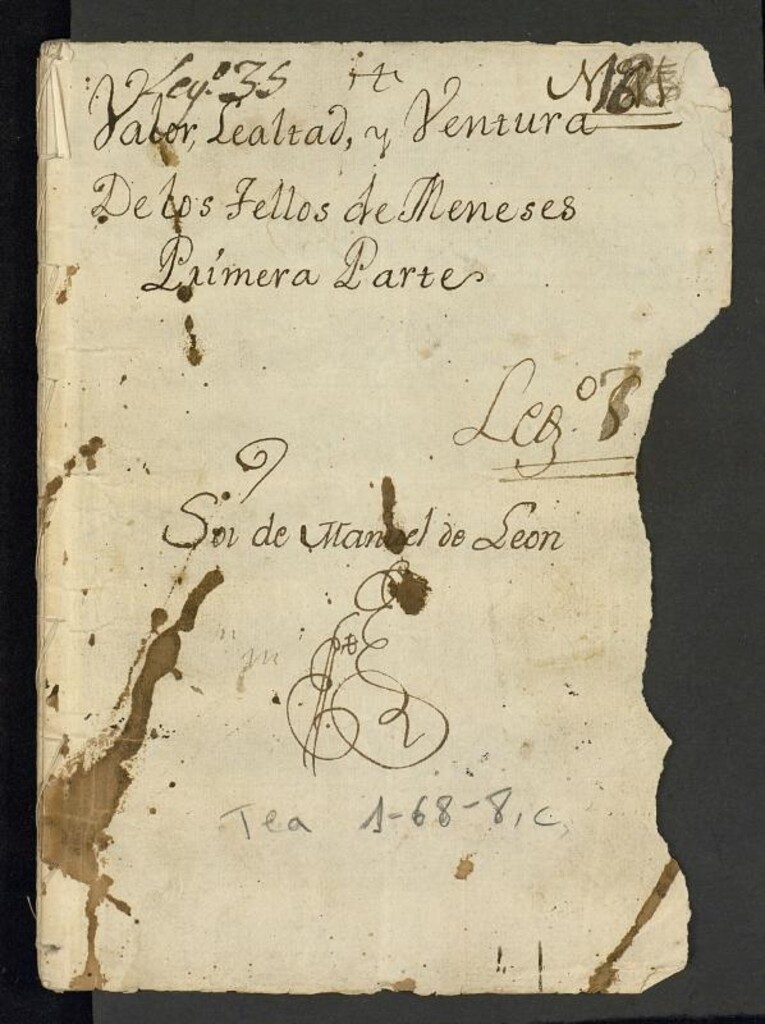 Leg.º 35 N
Valor, Lealtad, y Ventura
De los Tellos de Meneses
Primera Parte
Leg.º 7
Soi de Manuel de Leon
Tea 1-68-8, c,